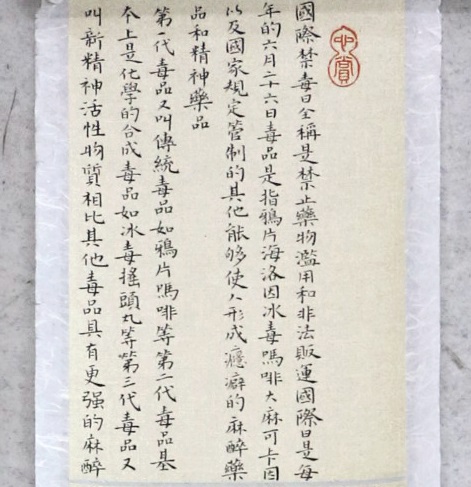 國際禁毒日全稱是禁止藥物濫用和非法販運國際日是每
年的六月二十六日毒品是指鴉片海洛因冰毒嗎啡大麻可卡因
以及國家規定管制的其他能够使人形成癮癖的麻醉藥
品和精神藥品
第一代毒品又叫傳統毒品如鴉片嗎啡等第二代毒品基
本上是化學的合成毒品如冰毒搖頭丸等第三代毒品又
叫新精神活性物質相比其他毒品具有更强的麻醉